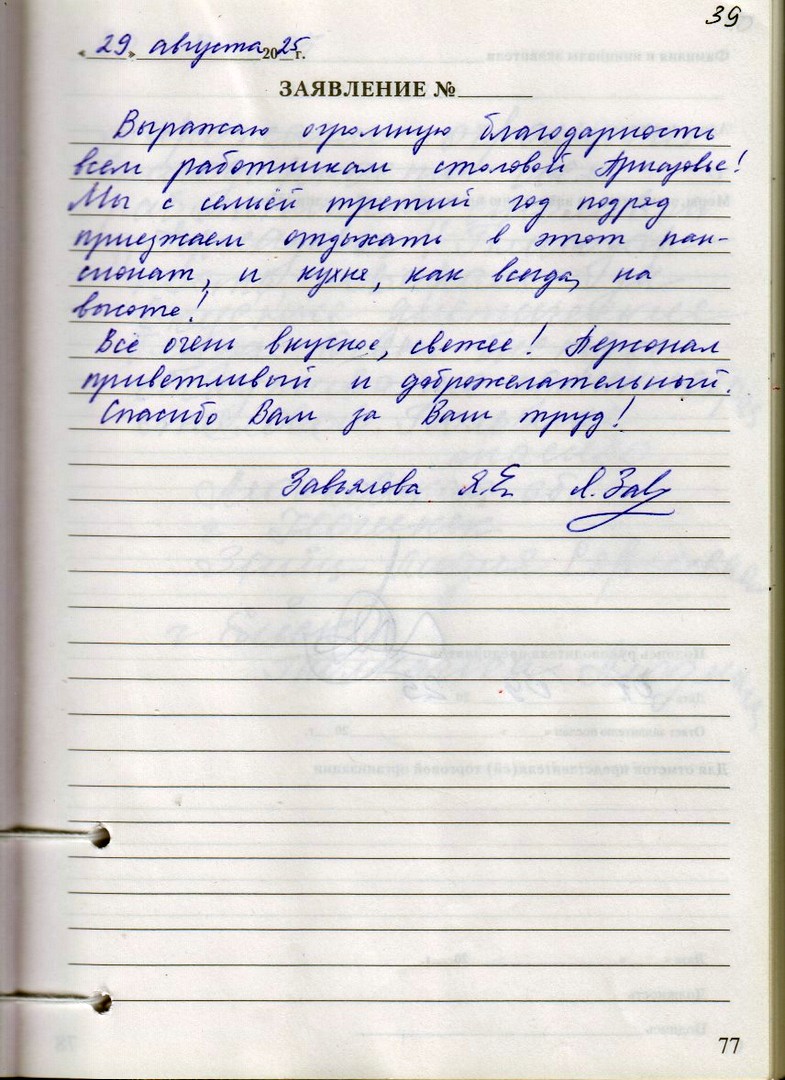 39
« 29 » августа 2025 г.
ЗАЯВЛЕНИЕ №
Выражаю огромную благодарность
всем работникам столовой Приазовье!
Мы с семьёй третий год подряд
приезжаем отдыхать в этот пан-
сионат, и кухне, как всегда, на
высоте!
Всё очень вкусное, свежее! Персонал
приветливый и доброжелательный.
Спасибо Вам за Ваш труд!
Завьялова Я.Е. Я. Зав
77